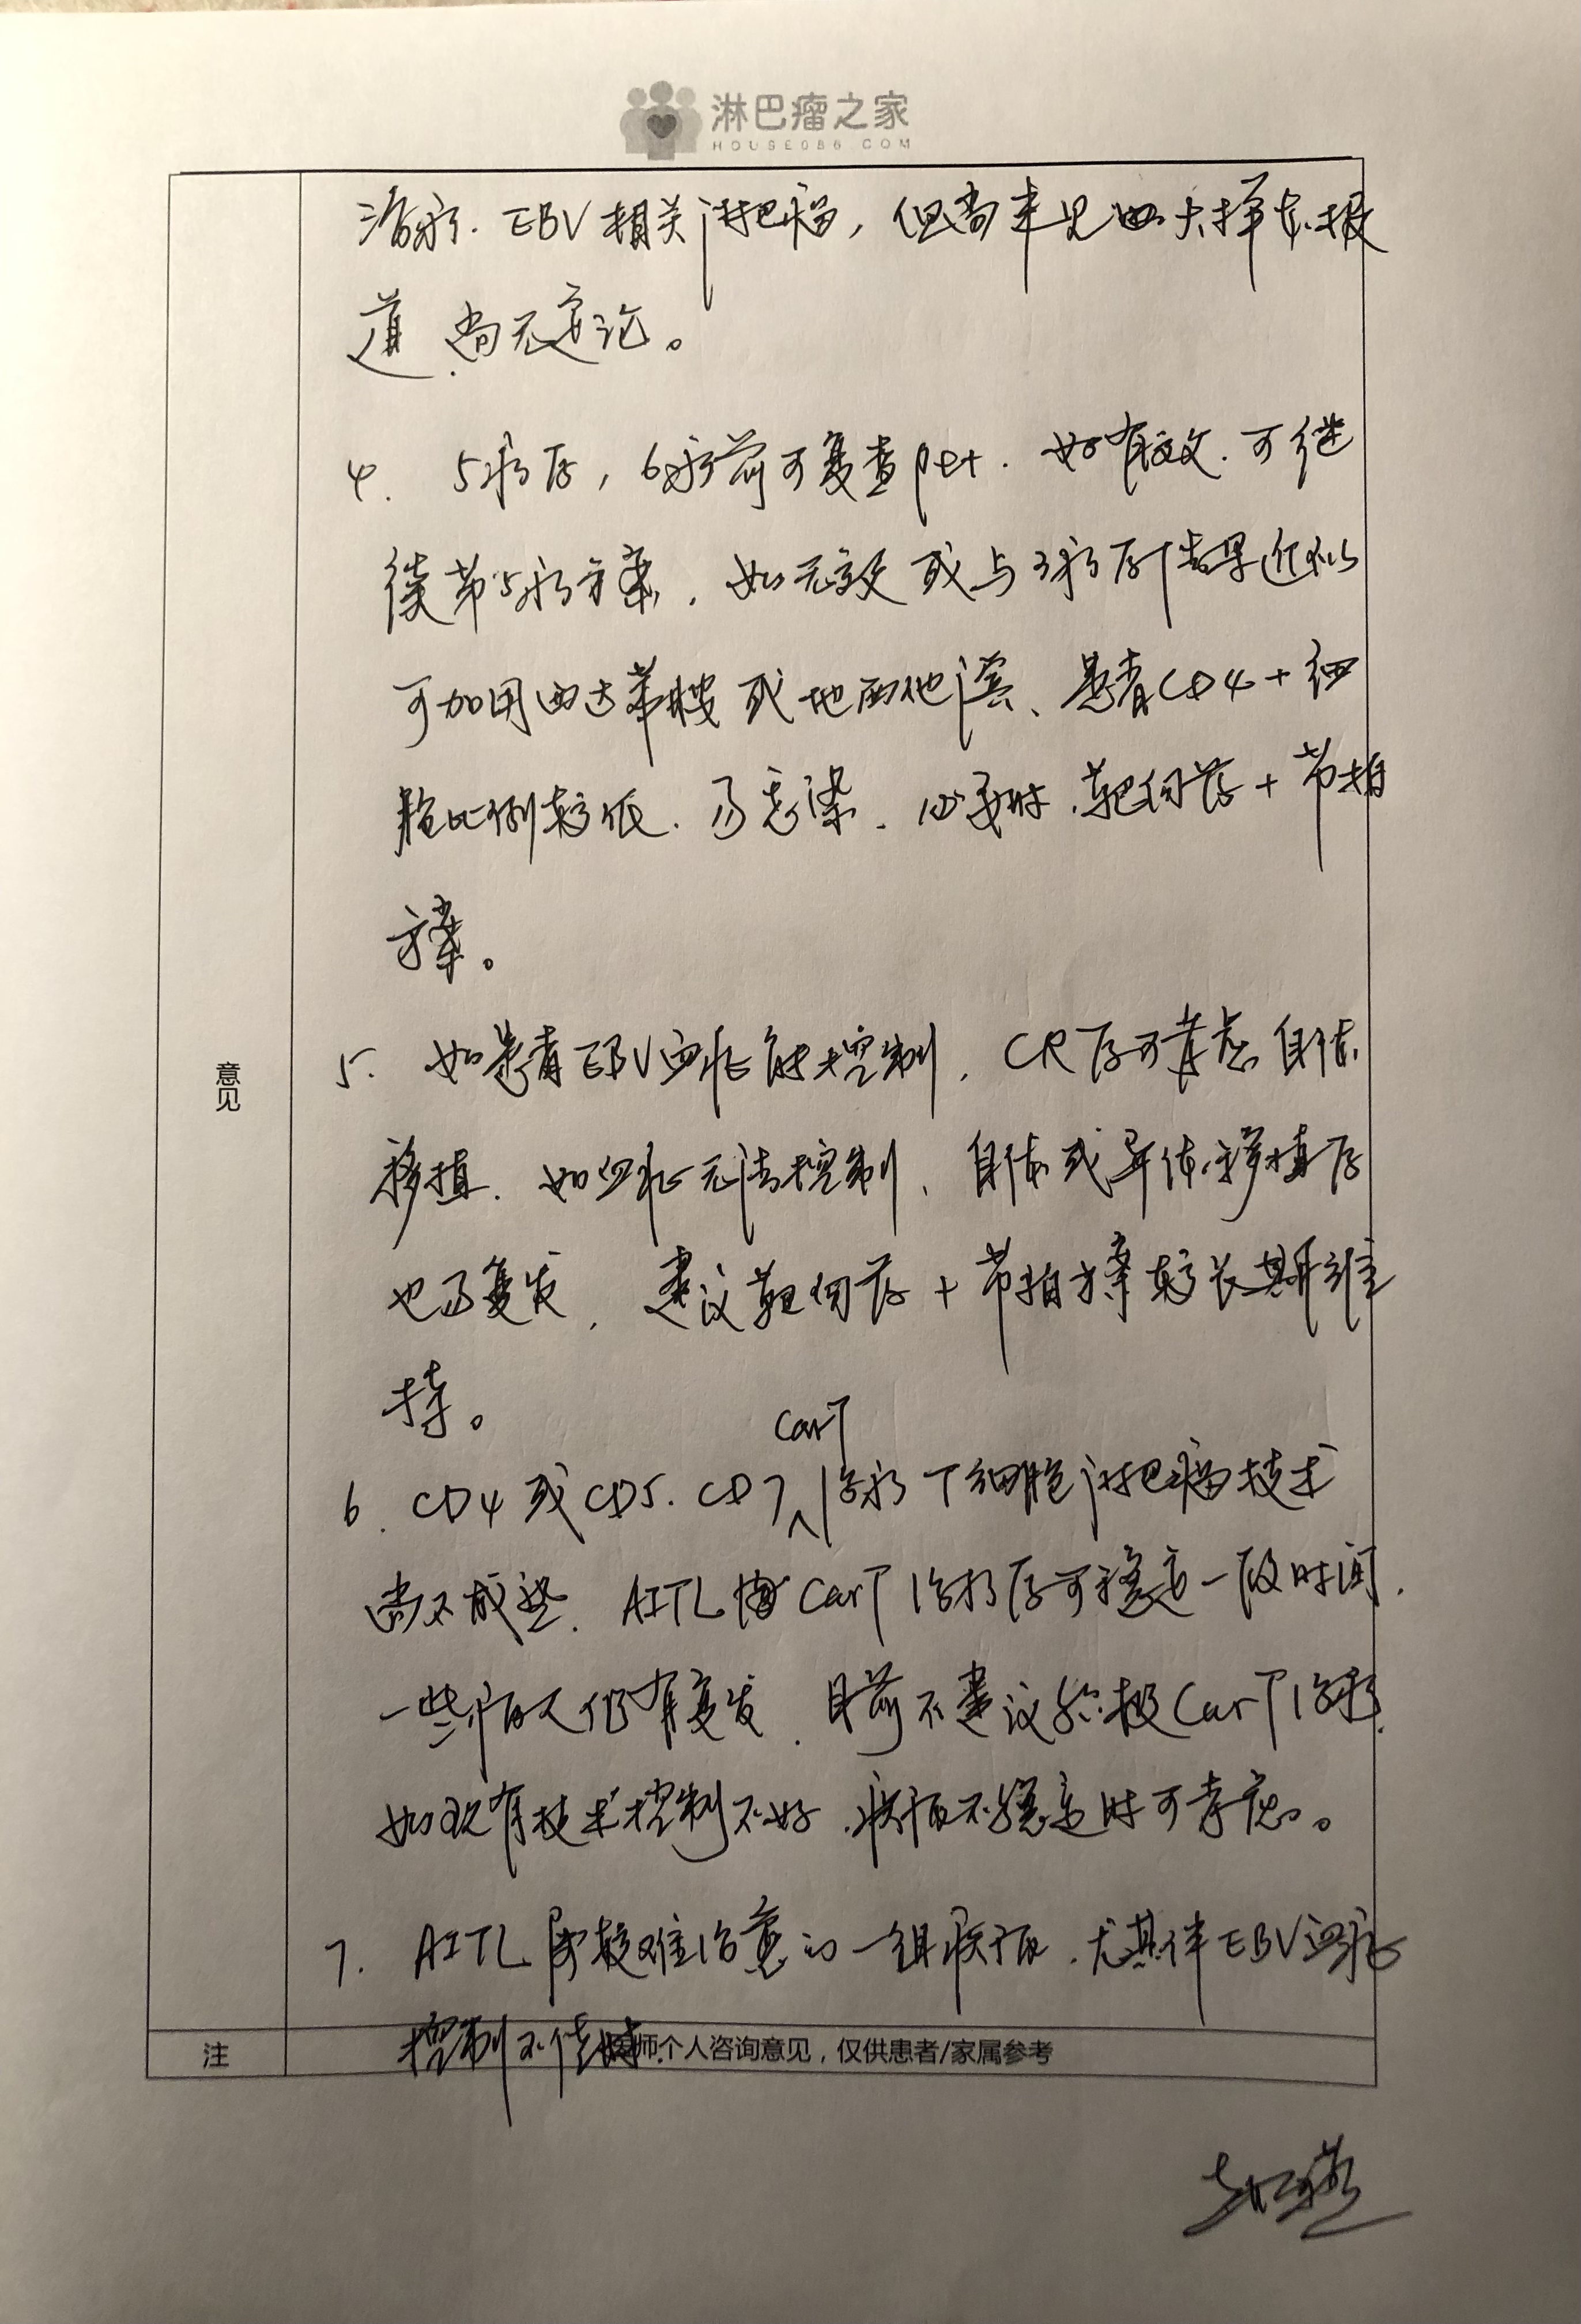 淋巴瘤之家
HOUSE086 COM
治疗 EBV相关淋巴瘤，但尚未见大样本报
道，尚无定论。
4. 5疗后，6疗前可复查pet. 如有效. 可继
续第5疗方案. 如无效或与3疗后结果近似
可加用西达苯胺或地西他滨、患者CD4+细
胞比例较低. 易感染. 必要时.靶向药+节拍
方案。
5. 如患者EBV血症能控制, CR后可考虑自体
移植. 如血症无法控制、自体或异体移植后
也易复发, 建议靶向药+节拍方案较长期维
持。
CarT
6. CD4或CD5. CD7治疗T细胞淋巴瘤技术
尚不成熟. AITL CarT治疗后可稳定一段时间.
一些病人仍有复发. 目前不建议积极CarT治疗.
如现有技术控制不好.疾病不稳定时可考虑。
7. AITL属较难治愈的一组疾病.尤其伴EBV血症
控制不佳时.
意见
注
医师个人咨询意见，仅供患者/家属参考